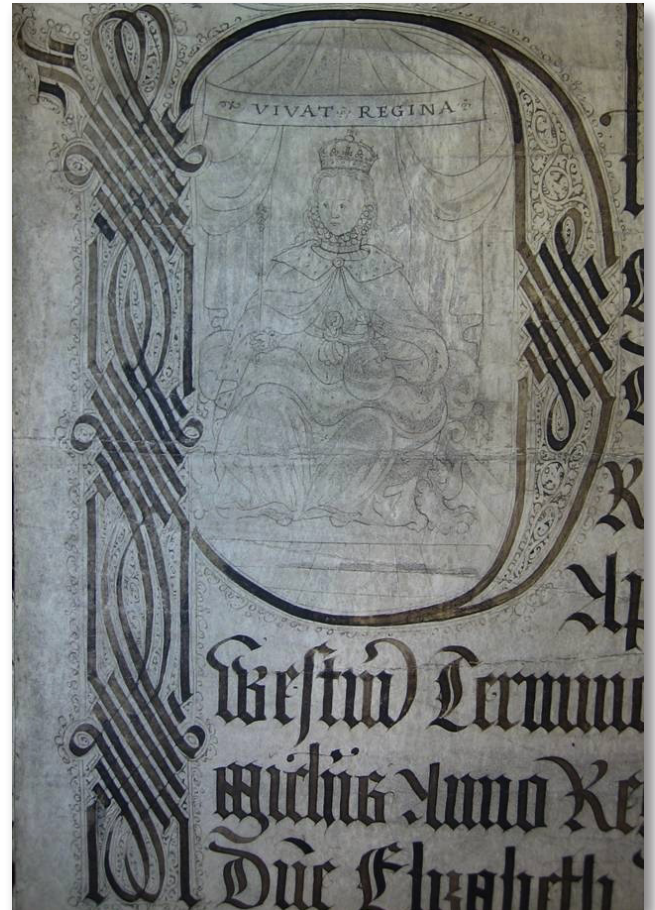 VIVAT REGINA
P
Ap
Westm̄ Termin
Michis Anno Re
Dn̄e Elizabeth